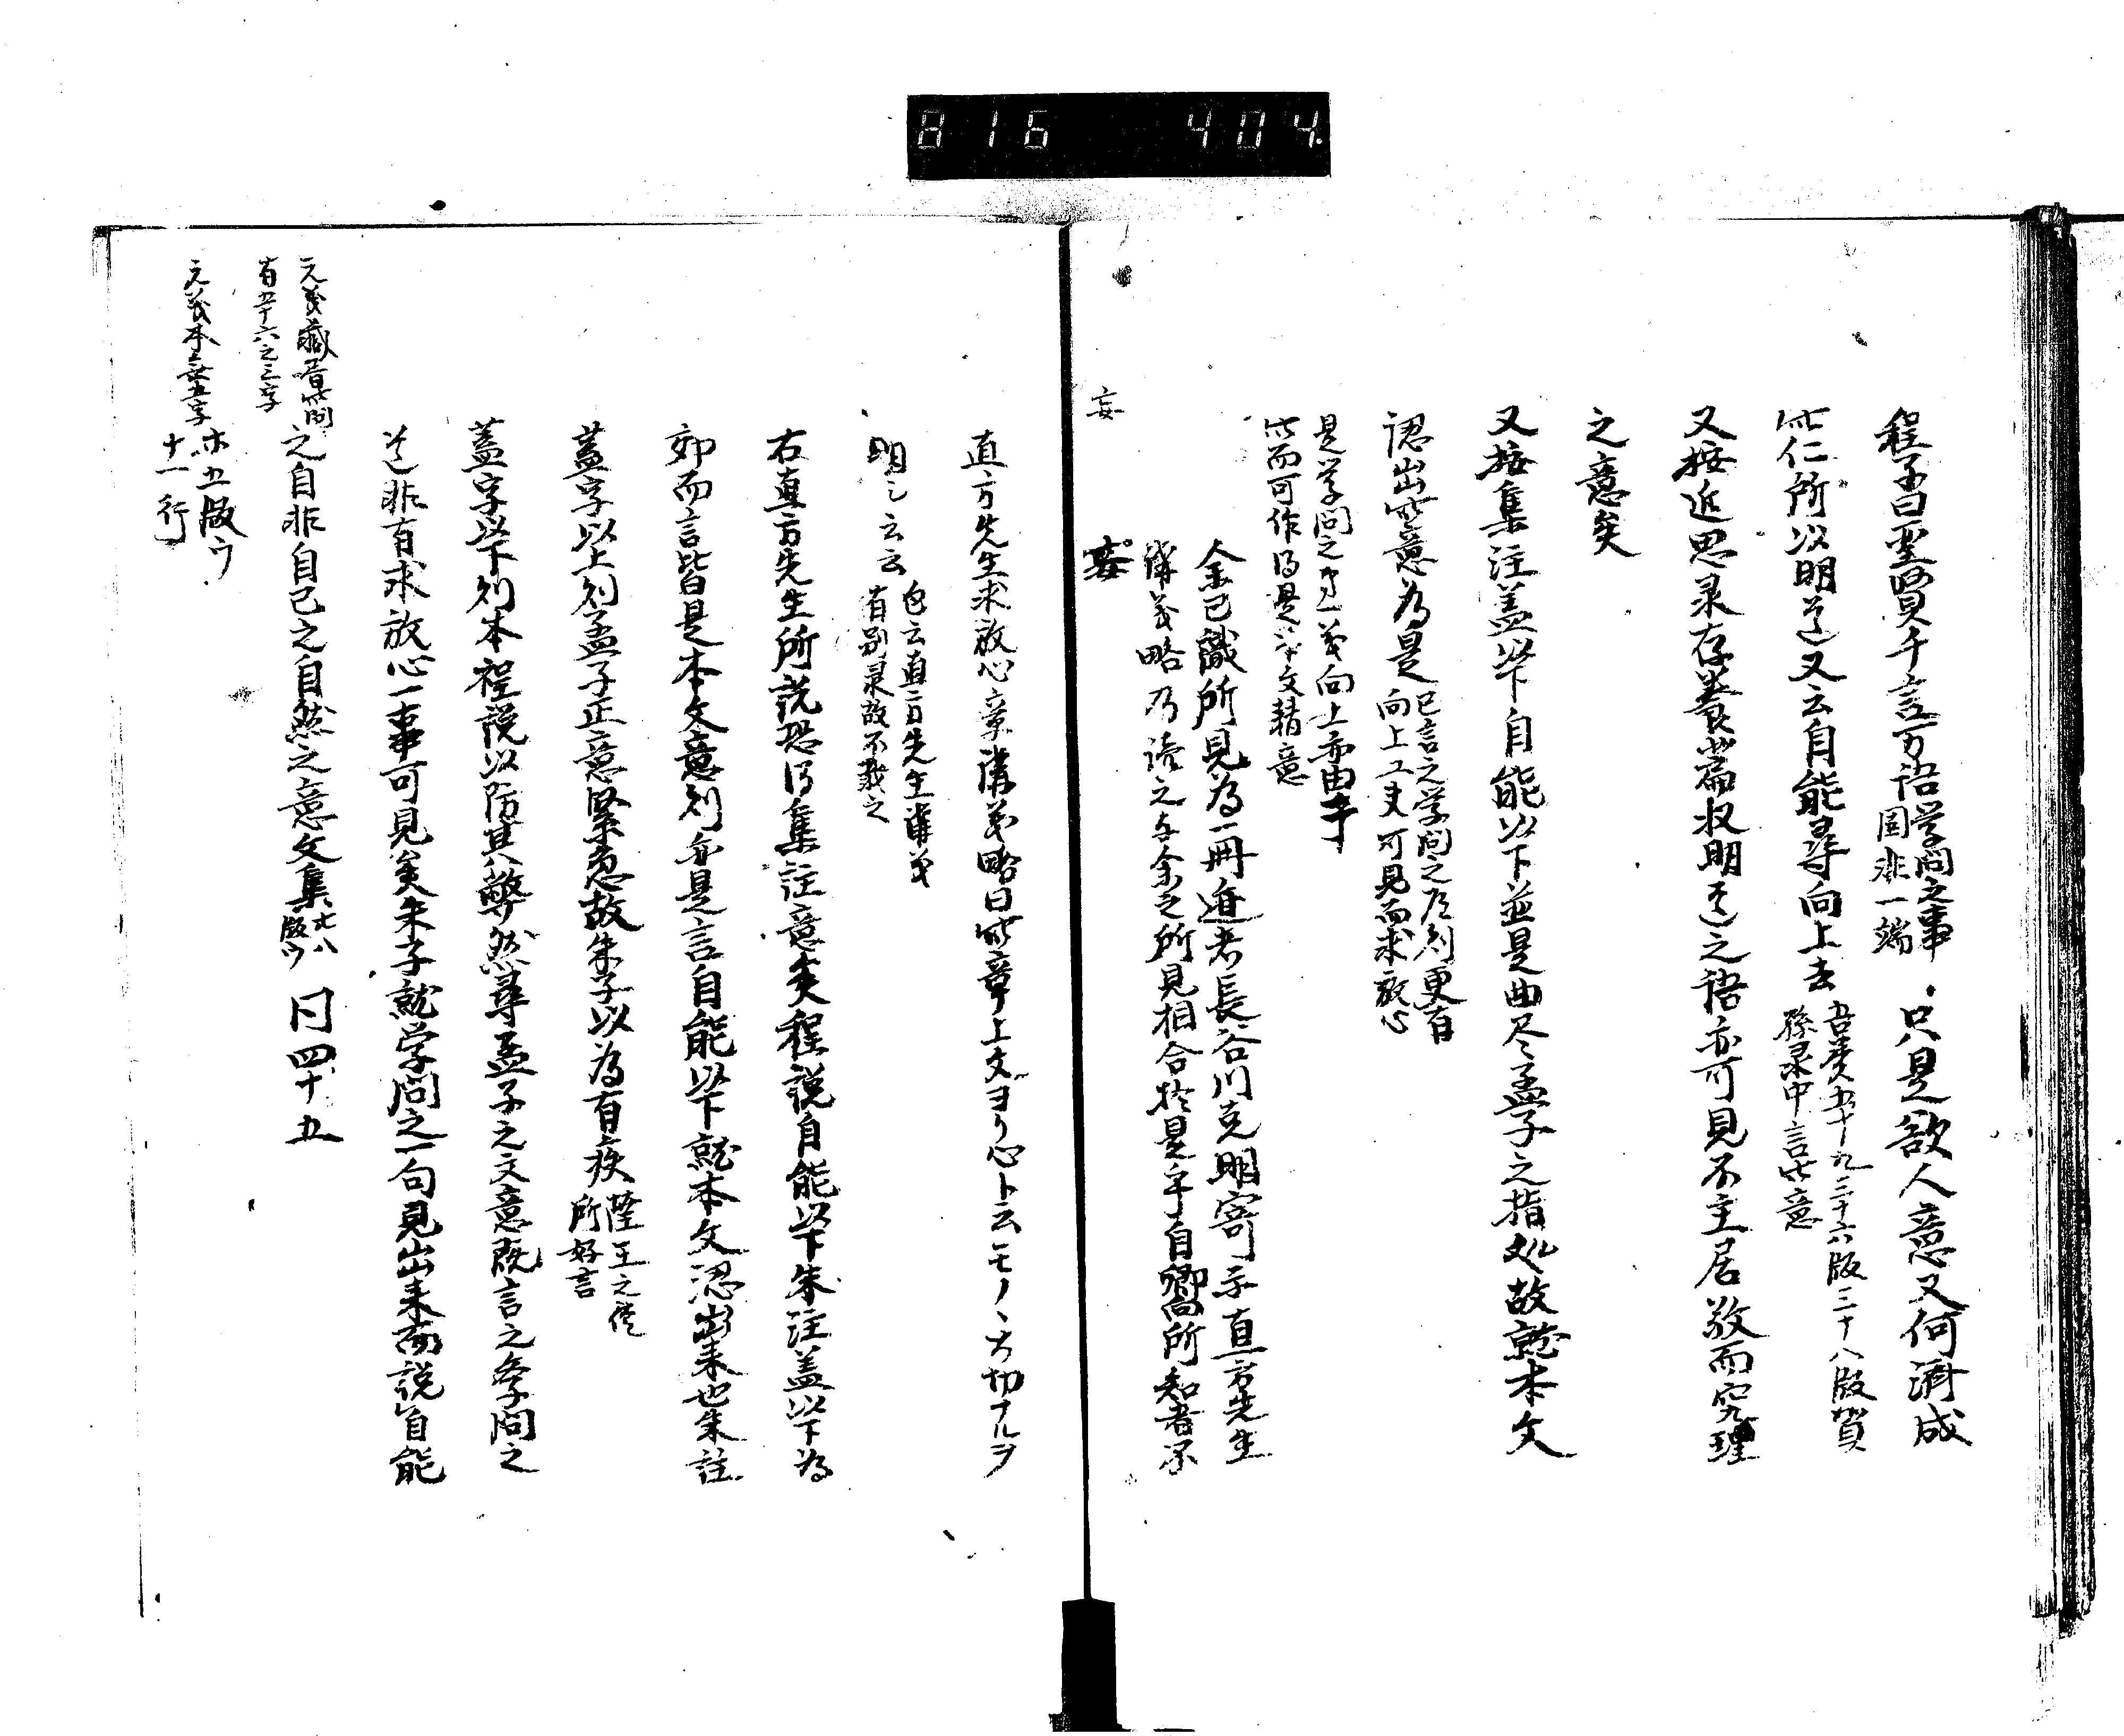 816 404
程子曰聖賢千言万語学問之事固非一端只是欲人意又何済成
此仁所以明道又云自能尋向上去語類五十九三十六版三十八版賀孫录中言此意
又按近思录存養篇收明道之語亦可見不主居敬而究理
之意矣
又按集注蓋以下自能以下並是曲尽孟子之指処故就本文
認出此意為是已言之学問之道則更有向上工夫可見而求放心
是学問之第一義向上亦由乎此而可作得是六字文精意
余已識所見為一冊近者長谷川克明寄示直方先生
講義略乃読之与余之所見相合於是乎自嚮所知者不
妄
妄
直方先生求放心章講義略曰此章上文ヨリ心ト云モノヽ大切ナルヲ
明之云云
包云直方先生講義
有別录故不載之
右直方先生所説恐得集註意矣程説自能以下朱注蓋以下為
卸而言皆是本文意則亦是言自能以下就本文認出来也朱註
蓋字以上則孟子正意緊急故朱子以為有疾
所好言
蓋字以下則本程説以防其弊然尋孟子之文意既言之学問之
道非有求放心一事可見矣朱子就学問之一句見出来而説自能
之自非自己之自然之意文集七八版ウ 同四十五
亦五版ウ
十一行
元義蔵書此間
有五十六之三字
元義本無五字